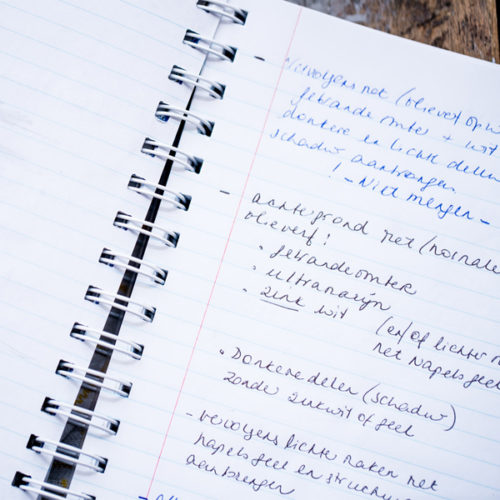 - vervolgens met (olieverf op w
gebrande omber + wit
donkere en lichte delen
schaduw aanbrengen
! - Niet mengen -
- achtergrond met (normale
olieverf!
• gebrande omber
• ultramarijn
• zink wit
(en/of lichter m
met Napels geel
• Donkere delen (schaduw)
zonder zinkwit of geel
- vervolgens lichte maken met
napels geel en
aanbrengen